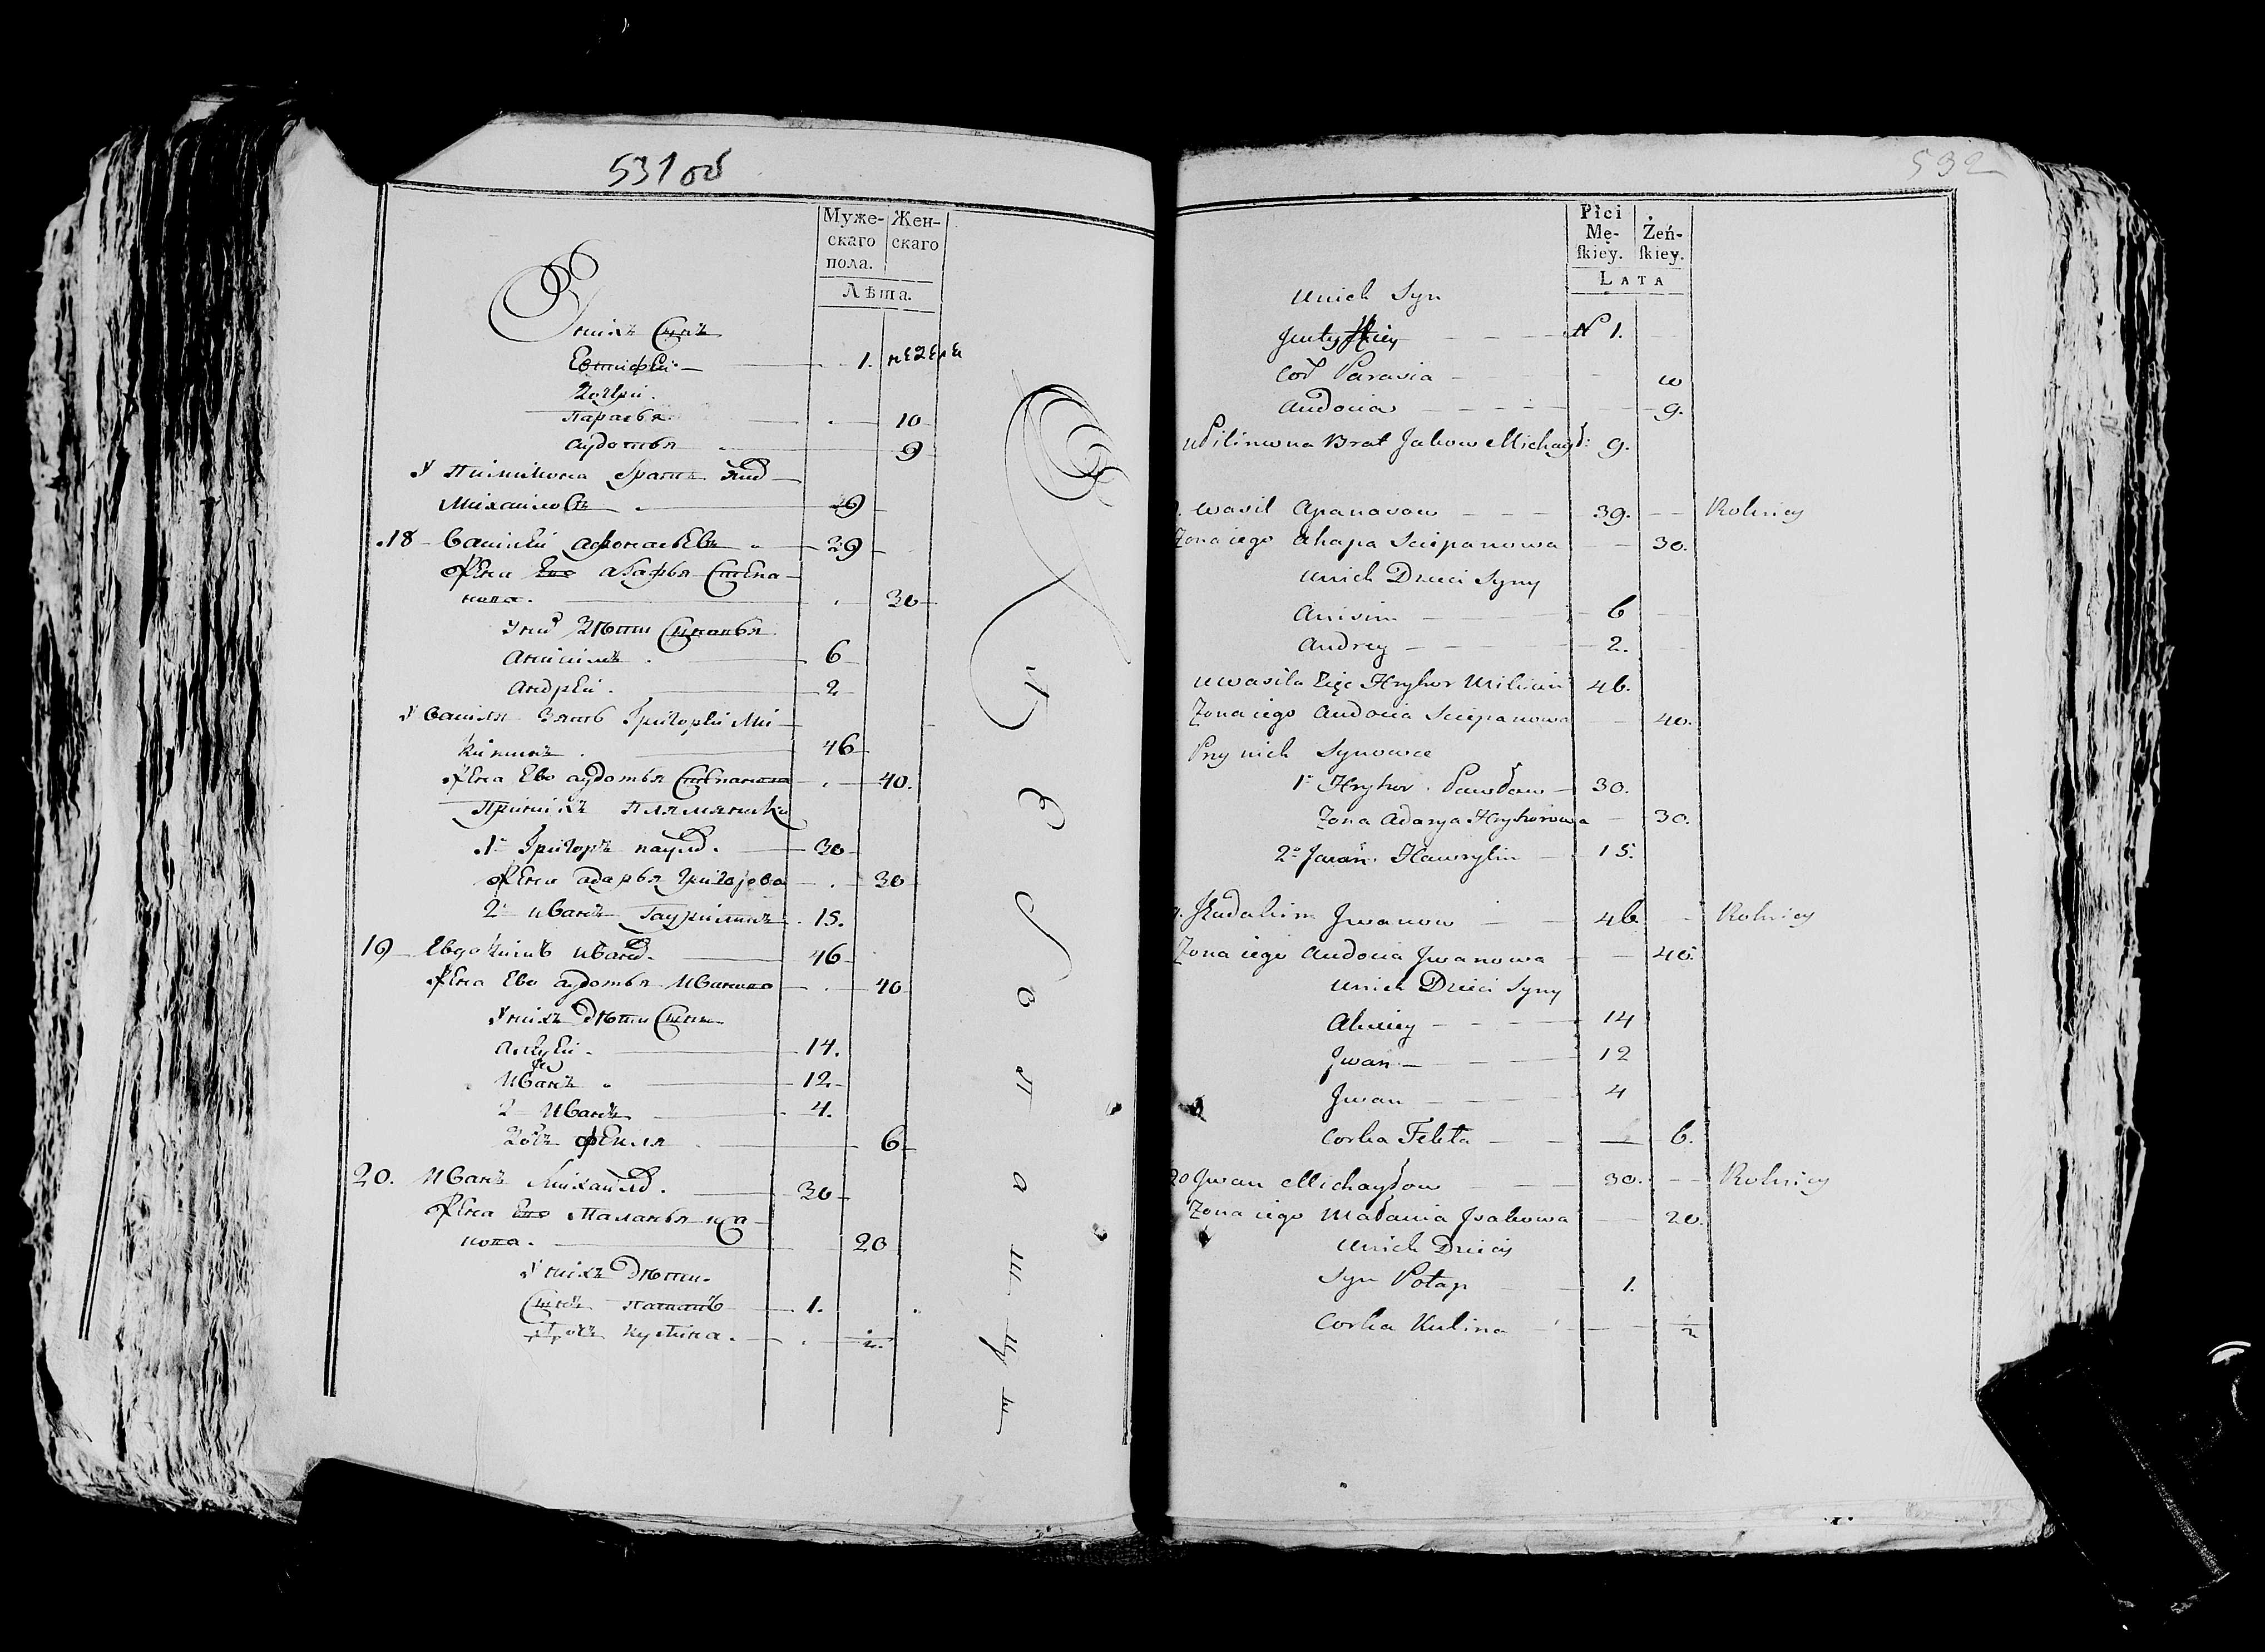 531 об
Муже- Жен-
скаго скаго
пола.
Лѣта.
У нихъ Сынъ
Евтифей 1. неделя
Дочери.
Парасья 10
Аудотья 9
У Пилипона братъ
Михайловъ 9
18 Василей Афонасьевъ 29
Жена Ево Агафья Степа-
нова. 30
дѣти Сыновья
Анисимъ 6
Андрей. 2
У Василя Зять Григорей Ми-
китинъ 46
Жена Ево Аудотья Степанова 40.
При нихъ Племянники
1й Григоръ Паул. 30
Жена Адарья Григорова 30
2й Иванъ Гаурилинъ 15.
19 Евдокимъ Иванов. 46
Жена Ево Аудотья Иванова 40
У нихъ дѣти Сыны
14.
Иванъ 12
2 Иванъ 4.
Дочь Фекля 6
20. Иванъ Михайлов. 30
Жена Ево Маланья Иса-
кова. 20
У нихъ дѣти.
Сынъ Патапъ 1.
Дочь Кулина.
532
Płci
Mę- Żeń-
ſkiey. ſkiey.
LATA
u nich Syn
N 1.
Cor Parasia 10
Audocia 9.
u Pilimona Brat Jakow Michaył: 9.
Wasil Apanasow 39. Rolniczy
Zona iego Ahapa Sciepanowa 30.
u nich Dzieci Syny
Anisim 6
Andrey 2.
u Wasila Zięć Hryhor Mikicin 46.
Zona iego Audocia Sciepanowa 40.
Przy nich Synowce
1o Hryhor Pawłow 30.
Zona Adarya Hryhorowa 30.
2o Jwan Hawrylin 15.
Jeudakim Jwanow 46 Rolniczy
Zona iego Audocia Jwanowa 40.
u nich Dzieci Syny
Alexiey 14
Jwan 12
Jwan 4
Corka Fekla 6.
20 Jwan Michayłow 30. Rolniczy
Zona iego Małania Jsakowa 20.
u nich Dzieci
Syn Potap 1.
Corka Kulina